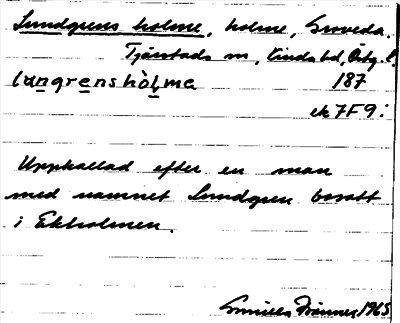 Lundgrens holme, holme, Groveda.
Tjärstads sn, Kinds hd, Östg. l.
lángrenshòlma 187
ek 7F9:
Uppkallad efter en man
med namnet Lundgren bosatt
i Ekholmen.
Gunilla 1965